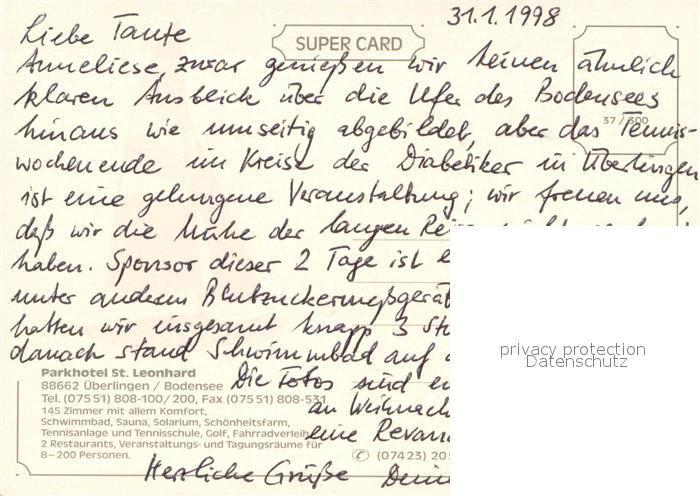 31.1.1998
Liebe Tante
SUPER CARD
Anneliese, zwar genießen wir keinen ähnlich
klaren Ausblick über die Ufer des Bodensees
37 / 300
hinaus wie umseitig abgebildet, aber das Tennis-
wochenende im Kreise der Diabetiker in Überlingen
ist eine gelungene Veranstaltung; wir freuen uns,
daß wir die Mühe der langen
haben. Sponsor dieser 2 Tage ist
unter anderem
hatten wir insgesamt knapp 3
danach stand Schwimmbad auf
privacy protection
Datenschutz
Parkhotel St. Leonhard
88662 Überlingen / Bodensee
Tel. (075 51) 808-100/200, Fax (075 51) 808-531
145 Zimmer mit allem Komfort,
Schwimmbad, Sauna, Solarium, Schönheitsfarm,
Tennisanlage und Tennisschule, Golf, Fahrradverleih,
2 Restaurants, Veranstaltungs- und Tagungsräume für
8–200 Personen.
Die Fotos sind
an
eine
✆ (074 23) 20
Herzliche Grüße